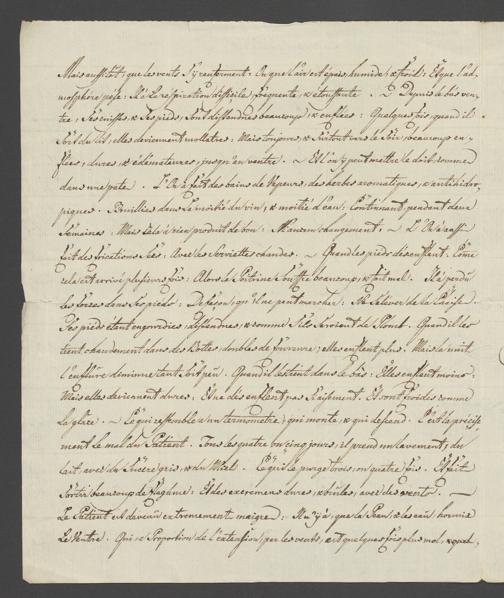 Mais aussitôt, que les vents s'y renferment: Ou que l'air est épais, humide, & froid; Et que l'ad-
mosphere pése: Il a la respiration difficile, fréquente, & étouffante. ~ Depuis le bas ven-
tre, ses cuisses, & ses pieds, sont destendues beaucoup, & enflées: Quelques fois, quand il
sort du lit, elles deviennent mollâtres: Mais toujours, & surtout vers le soir, beaucoup en-
flées, dures, & édemateuses, jusqu'au ventre. ~ Et l'on y peut mettre le doit, comme
dans une pâte. L'On a fait des bains de Vapeurs, des herbes aromatiques, & antihidro-
piques. Bouillies dans la moitié du vin, & moitié d'eau, Continuant pendant deux
Semaines: Mais cela n'a rien produit de bon: Ni aucun changement. ~ L'On a aussi
fait des frictions sec: Avec les Serviettes chaudes. ~ Quand les pieds désenflent, Come
cela est arrivé plusieurs fois: Alors la Poitrine souffre beaucoup, & fait mal. Il a perdu
les forces dans ses pieds: De façon, qu'il ne peut marcher: Ni se lever de la Chaise.
Ses pieds étant engourdies, destendues, & comme s'ils seroient de Plomb. Quand il les
tient chaudement dans des Bottes, doublés de fourrure; elles enflent plus. Mais la nuit
l'enflûre diminue tant soit peu. Quand il les tient dans le bas: Elles enflent moins:
Mais elles deviennent dures: Et ne dés enflent pas si aisement. Et sont froides comme
la glâce. ~ Ce qui ressemble a un termometre, qui monte, & qui descend. C'est la précise-
ment le mal du Patient. Tous les quatre ou cinq jours, il prend un lavement, du
lait, avec du Sucre gris, & du Miel. Ce qui le purge trois, ou quatre fois. Et fait
sortir beaucoup de flaghme: Et des excremens dures, & brulés, avec des vents. —
Le Patient est devenu extremement maigre: Il n'y à, que la Peau, & les os, hormis
Le Ventre. Qui à Proportion de l'extension, par les vents, est quelques fois plus mol,